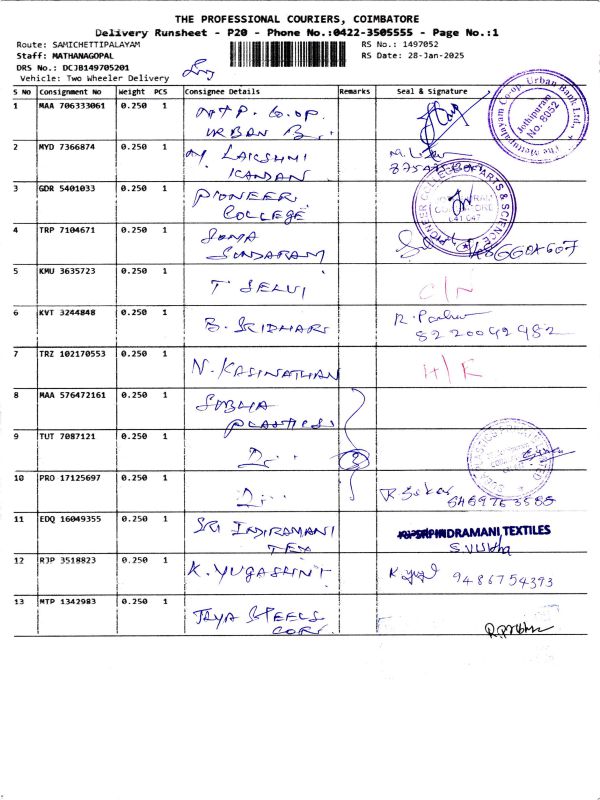 THE PROFESSIONAL COURIERS, COIMBATORE
Delivery Runsheet - P20 - Phone No.:0422-3505555 - Page No.:1
Route: SAMICHETTIPALAYAM
RS No.: 1497052
Staff: MATHANAGOPAL
RS Date: 28-Jan-2025
DRS No.: DCJB149705201
Vehicle: Two Wheeler Delivery
S No Consignment No Weight PCS Consignee Details Remarks Seal & Signature
1 MAA 706333061 0.250 1 NTP. CO.OP.
URBAN B...
The Metupalayam Co-op Urban Bank Ltd.,
Jothipuram
No. 8052
2 MYD 7366874 0.250 1 M LAKSHMI
KANDAN
3 GDR 5401033 0.250 1 PIONEER
COLLEGE
PIONEER COLLEGE OF ARTS & SCIENCE
641 047
4 TRP 7104671 0.250 1 SOMA
SUNDARAM
5 KMU 3635723 0.250 1 T SELVI C/N
6 KVT 3244848 0.250 1 B. SRIDHAR R.
8220042982
7 TRZ 102170553 0.250 1 N. KASINATHAN H/K
8 MAA 576472161 0.250 1 SUBHA
PLASTICS
9 TUT 7087121 0.250 1 D... 3
10 PRO 17125697 0.250 1 D... R Sekar
11 EDQ 16049355 0.250 1 SRI INDIRAMANI
TEX
INDRAMANI TEXTILES
12 RJP 3518823 0.250 1 K. YUGASHINI K
9486754393
13 MTP 1342983 0.250 1 JAYA STEELS
CORP.